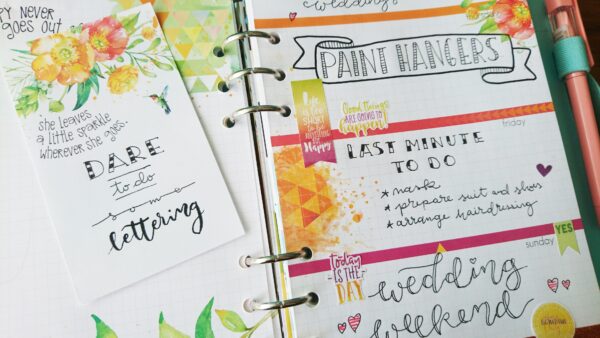 PY NEVER
GOES OUT
she leaves
a little sparkle
wherever she goes.
DARE
to do
some
lettering
wedding
PAINT HANGERS
SHORT
Happy
Good things
ARE GOING TO
happen!
friday
LAST MINUTE
TO DO
* mask
* prepare suit and shoes
* arrange hairdressing
YES
sunday
today
IS THE
DAY
wedding
weekend